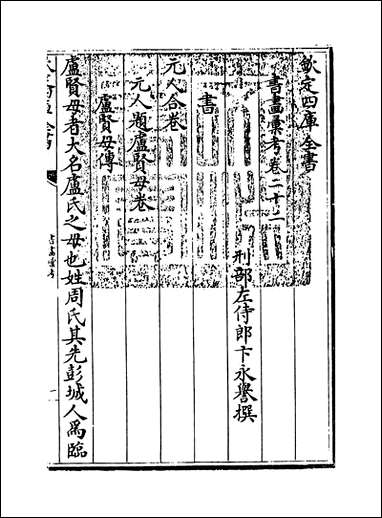 欽定四庫全書
書畫彙考卷二十二
刑部左侍郎卞永譽撰
書
元人合卷
元人題盧賢母卷
盧賢母傳
盧賢母者大名盧氏之母也姓周氏其先彭城人爲臨
書畫彙考